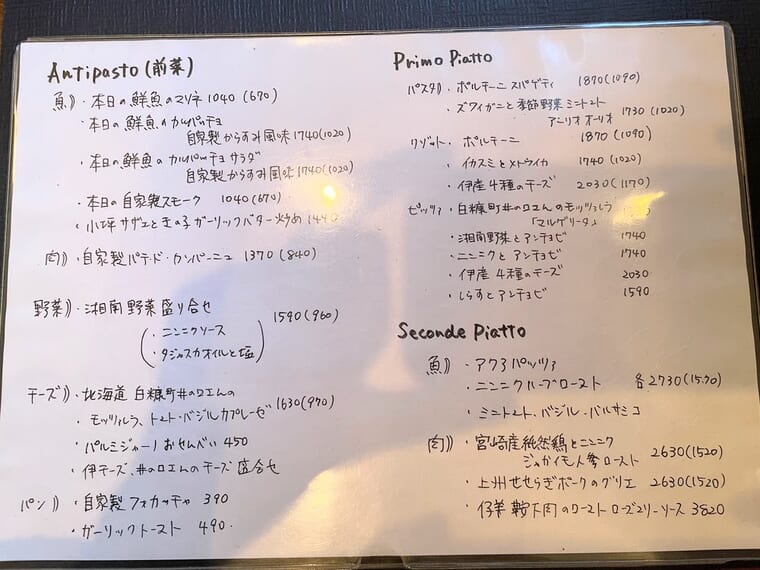 Antipasto (前菜)
魚》・本日の鮮魚のマリネ 1040 (670)
・本日の鮮魚のカルパッチョ
自家製からすみ風味 1740 (1020)
・本日の鮮魚のカルパッチョサラダ
自家製からすみ風味 1740 (1020)
・本日の自家製スモーク 1040 (670)
・小坪サザエときの子ガーリックバター炒め
肉》・自家製パテ・ド・カンパーニュ 1370 (840)
野菜》・湘南野菜盛り合せ 1590 (960)
・ニンニクソース
・タジャスカオイルと塩
チーズ》・北海道 白糠町井ノ口さんの
モッツァレラ、トマト・バジルカプレーゼ 1630 (970)
・パルミジャーノおせんべい 450
・伊チーズ、井ノ口さんのチーズ盛合せ
パン》・自家製フォカッチャ 390
・ガーリックトースト 490.
Primo Piatto
パスタ》・ポルチーニ スパゲティ 1870 (1090)
・ズワイガニと季節野菜 ミニトマト
アーリオオーリオ 1730 (1020)
リゾット・ポルチーニ 1870 (1090)
・イカスミとメトウイカ 1740 (1020)
・伊産4種のチーズ 2030 (1170)
ピッツァ・白糠町井ノ口さんのモッツァレラ
「マルゲリータ」
・湘南野菜とアンチョビ 1740
・ニンニクとアンチョビ 1740
・伊産4種のチーズ 2030
・しらすとアンチョビ 1590
Seconde Piatto
魚》・アクアパッツァ
・ニンニクハーブロースト 各2730
・ミニトマト・バジル・バルサミコ
肉》・宮崎産純然鶏とニンニク
ジャガイモ人参ロースト 2630 (1520)
・上州せせらぎポークのグリエ 2630 (1520)
・仔羊鞍下肉のロースト ローズマリーソース 3820